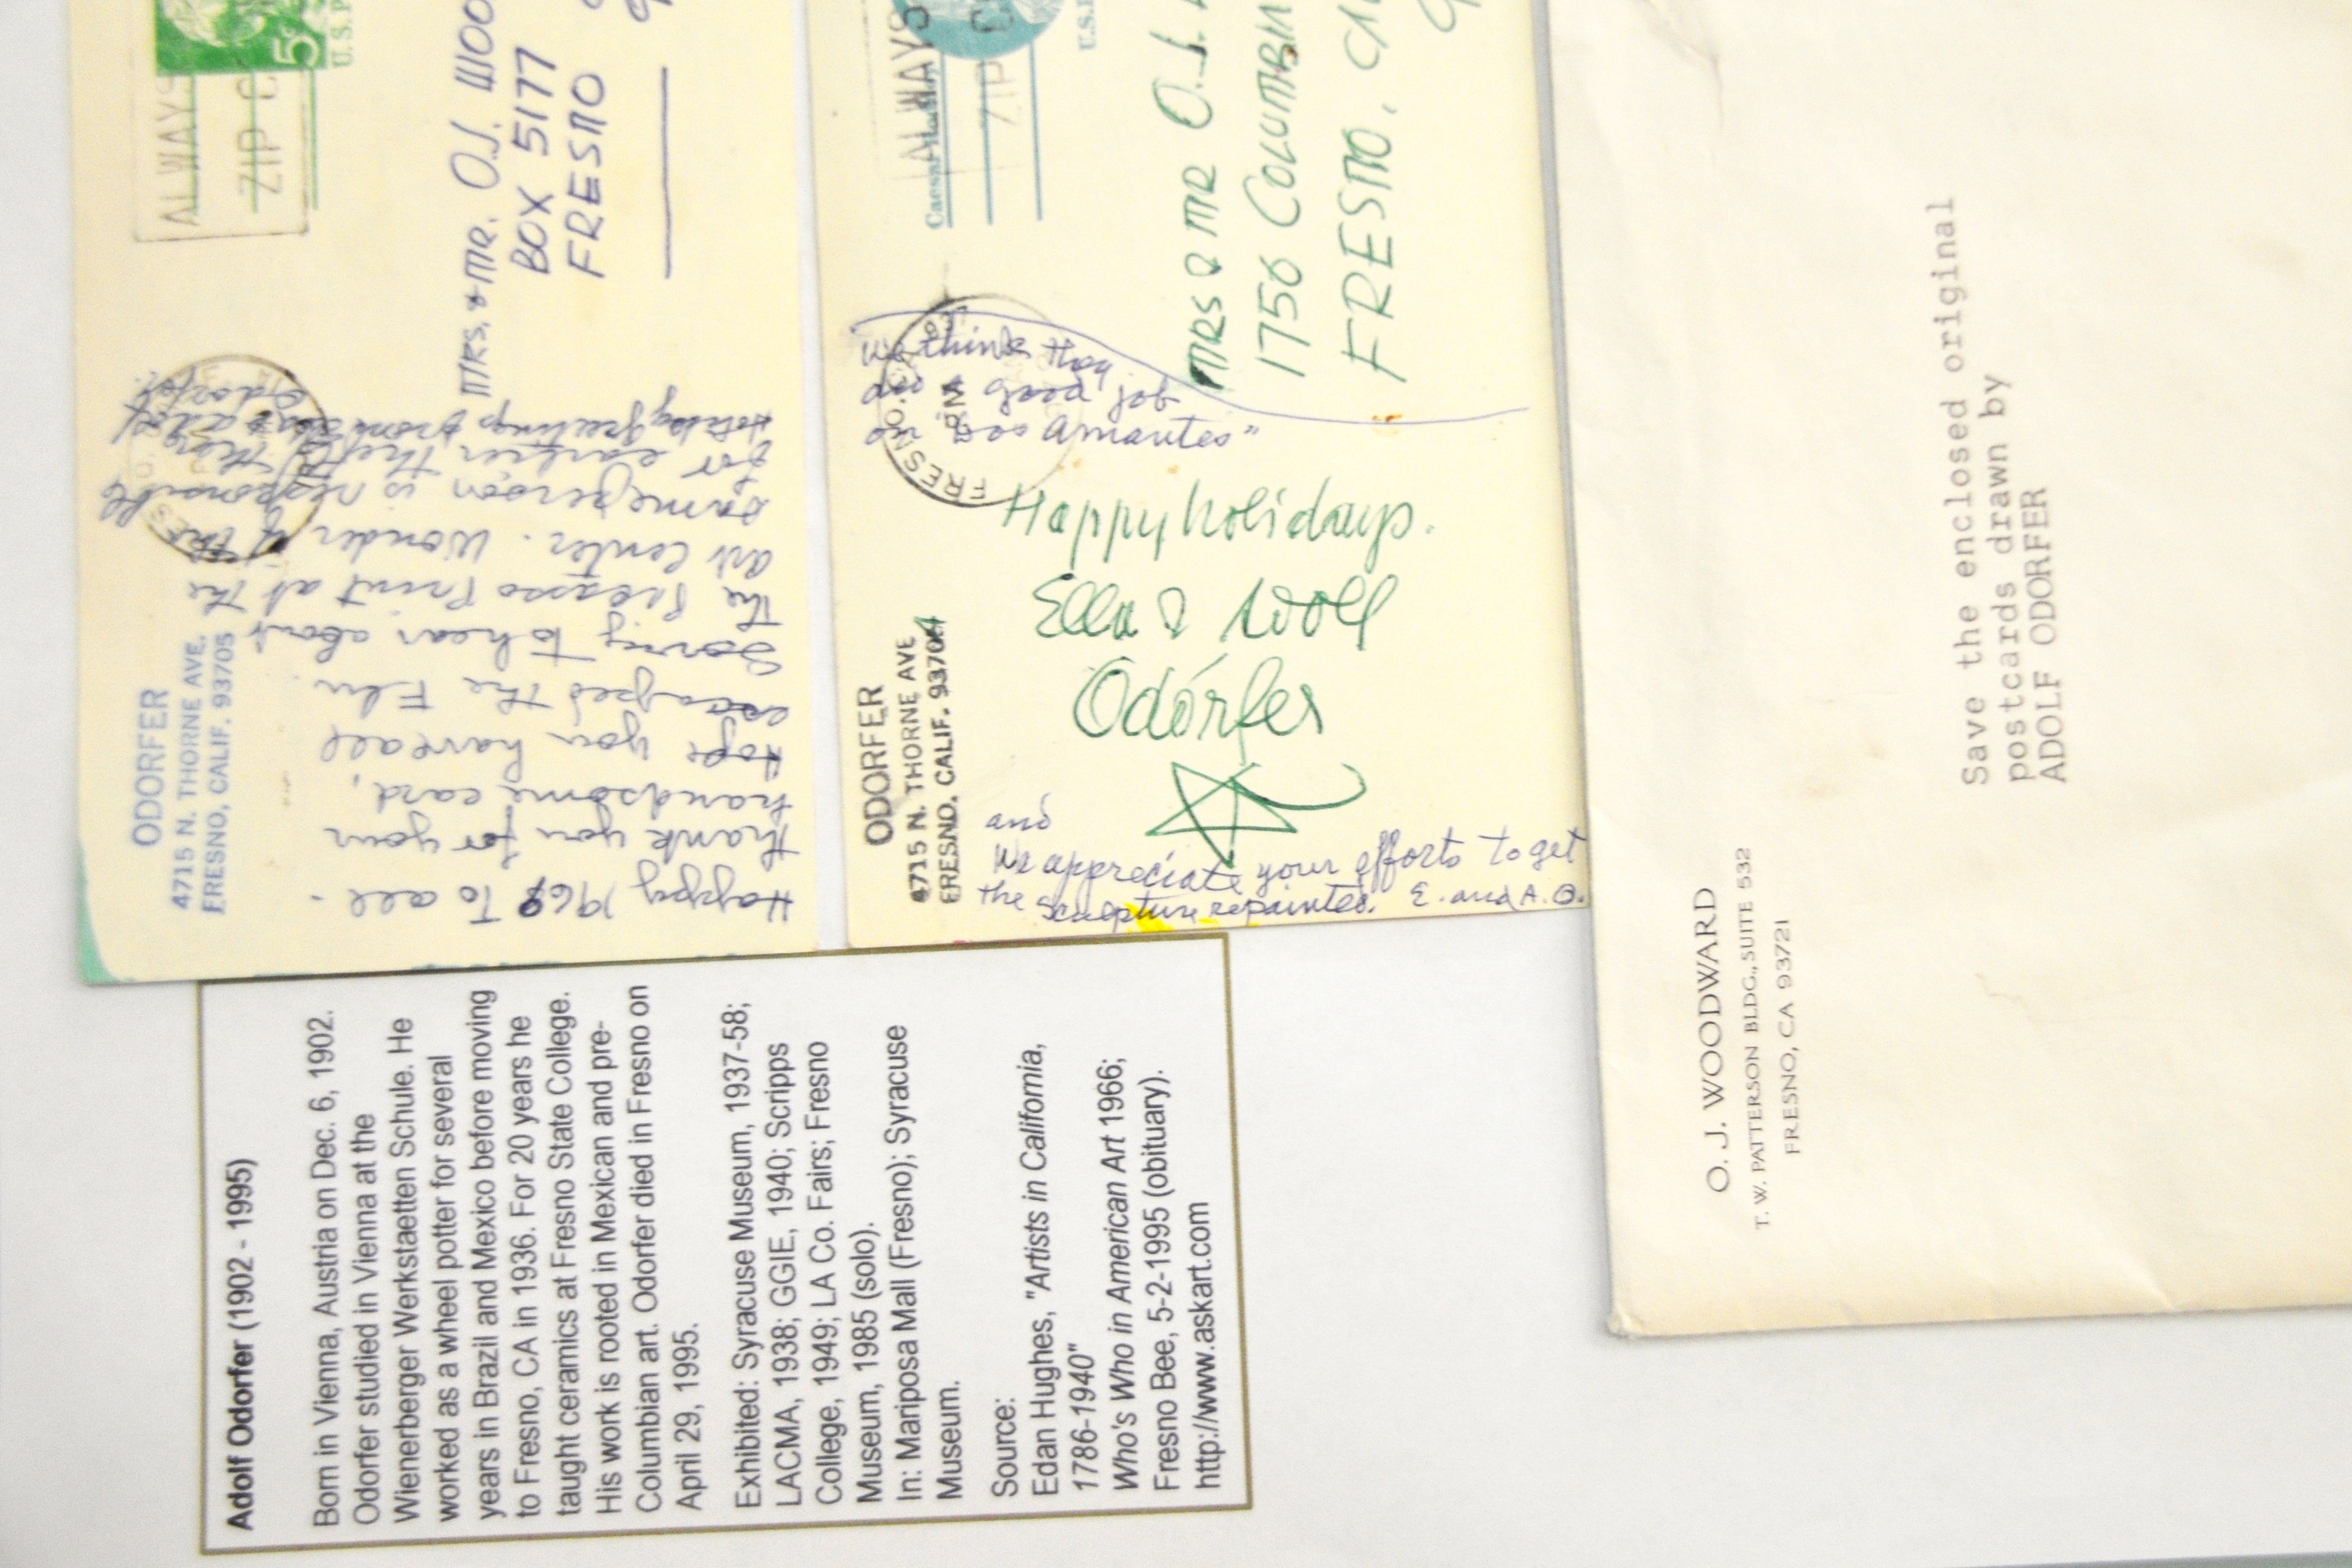 ALWAYS
ZIP C
5¢
U.S. P
ODORFER
4715 N. THORNE AVE.
FRESNO, CALIF. 93705
MRS. & MR. O.J. WOO
BOX 5177
FRESNO
Happy 1968 To all.
Thank you for your
handsome card.
Hope you have all
escaped the Flu.
Sorry to hear about
the Picasso Print at the
art center. Wonder if the
same person is responsible
for
Holiday greetings from
Odorfer.
ALWAYS
ZIP C
U.S.P
Caesar
FRESNO, CA
PM
ODORFER
4715 N. THORNE AVE
FRESNO, CALIF. 93704
MRS & MR O.J.
1756 COLUMBIA
FRESNO, CAL
We think they
did a good job
on "Los Amantes"
Happy holidays.
Ella & Adolf
Odórfer
and
We appreciate your efforts to get
the sculpture repainted. E. and A. O.
Adolf Odorfer (1902 - 1995)
Born in Vienna, Austria on Dec. 6, 1902.
Odorfer studied in Vienna at the
Wienerberger Werkstaetten Schule. He
worked as a wheel potter for several
years in Brazil and Mexico before moving
to Fresno, CA in 1936. For 20 years he
taught ceramics at Fresno State College.
His work is rooted in Mexican and pre-
Columbian art. Odorfer died in Fresno on
April 29, 1995.
Exhibited: Syracuse Museum, 1937-58;
LACMA, 1938; GGIE, 1940; Scripps
College, 1949; LA Co. Fairs; Fresno
Museum, 1985 (solo).
In: Mariposa Mall (Fresno); Syracuse
Museum.
Source:
Edan Hughes, "Artists in California,
1786-1940"
Who's Who in American Art 1966;
Fresno Bee, 5-2-1995 (obituary).
http://www.askart.com
O. J. WOODWARD
T. W. PATTERSON BLDG., SUITE 532
FRESNO, CA 93721
Save the enclosed original
postcards drawn by
ADOLF ODORFER